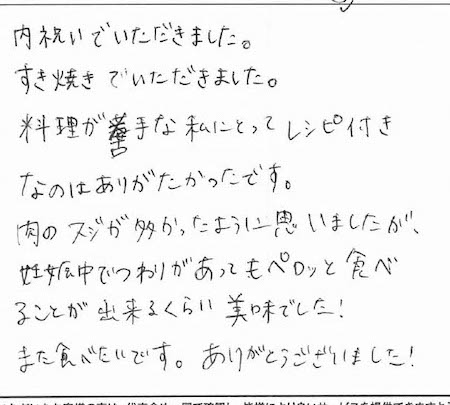 内祝いでいただきました。
すき焼きでいただきました。
料理が苦手な私にとってレシピ付き
なのはありがたかったです。
肉のスジが多かったように思いましたが、
妊娠中でつわりがあってもペロッと食べ
ることが出来るくらい美味でした!
また食べたいです。ありがとうございました!